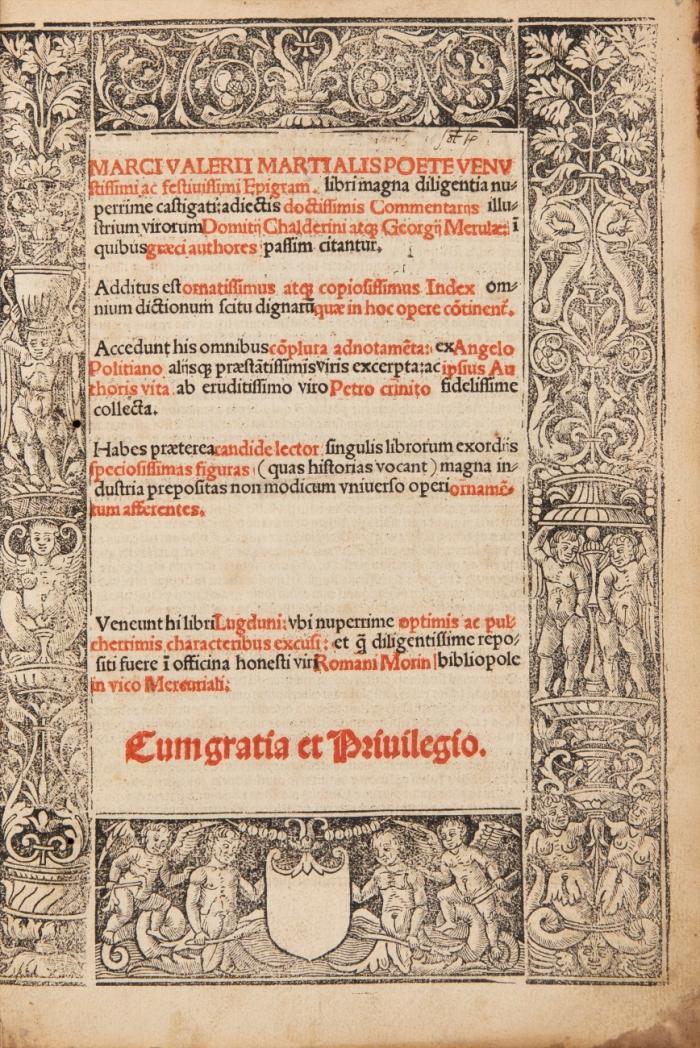 MARCI VALERII MARTIALIS POETE VENV
stissimi ac festiuissimi Epigram. libri magna diligentia nu⸗
perrime castigati: adiectis doctissimis Commentarijs illu⸗
strium virorum Domitij Chalderini atqꝫ Georgij Merulæ: ī
quibus græci authores passim citantur.
Additus est ornatissimus atqꝫ copiosissimus Index om⸗
nium dictionum scitu dignarū quæ in hoc opere cōtinent̃.
Accedunt his omnibus cōplura adnotamēta: ex Angelo
Politiano aliisqꝫ præstātissimis viris excerpta: ac ipsius Au
thoris vita ab eruditissimo viro Petro crinito fidelissime
collecta.
Habes præterea candide lector singulis librorum exordiis
speciosissimas figuras (quas historias vocant) magna in⸗
dustria prepositas non modicum vniuerso operi ornamē⸗
tum afferentes.
Veneunt hi libri Lugduni: vbi nuperrime optimis ac pul⸗
cherrimis characteribus excusi: et q̄ diligentissime repo⸗
siti fuere ī officina honesti viri Romani Morin bibliopole
in vico Mercuriali:
Cum gratia et Priuilegio.